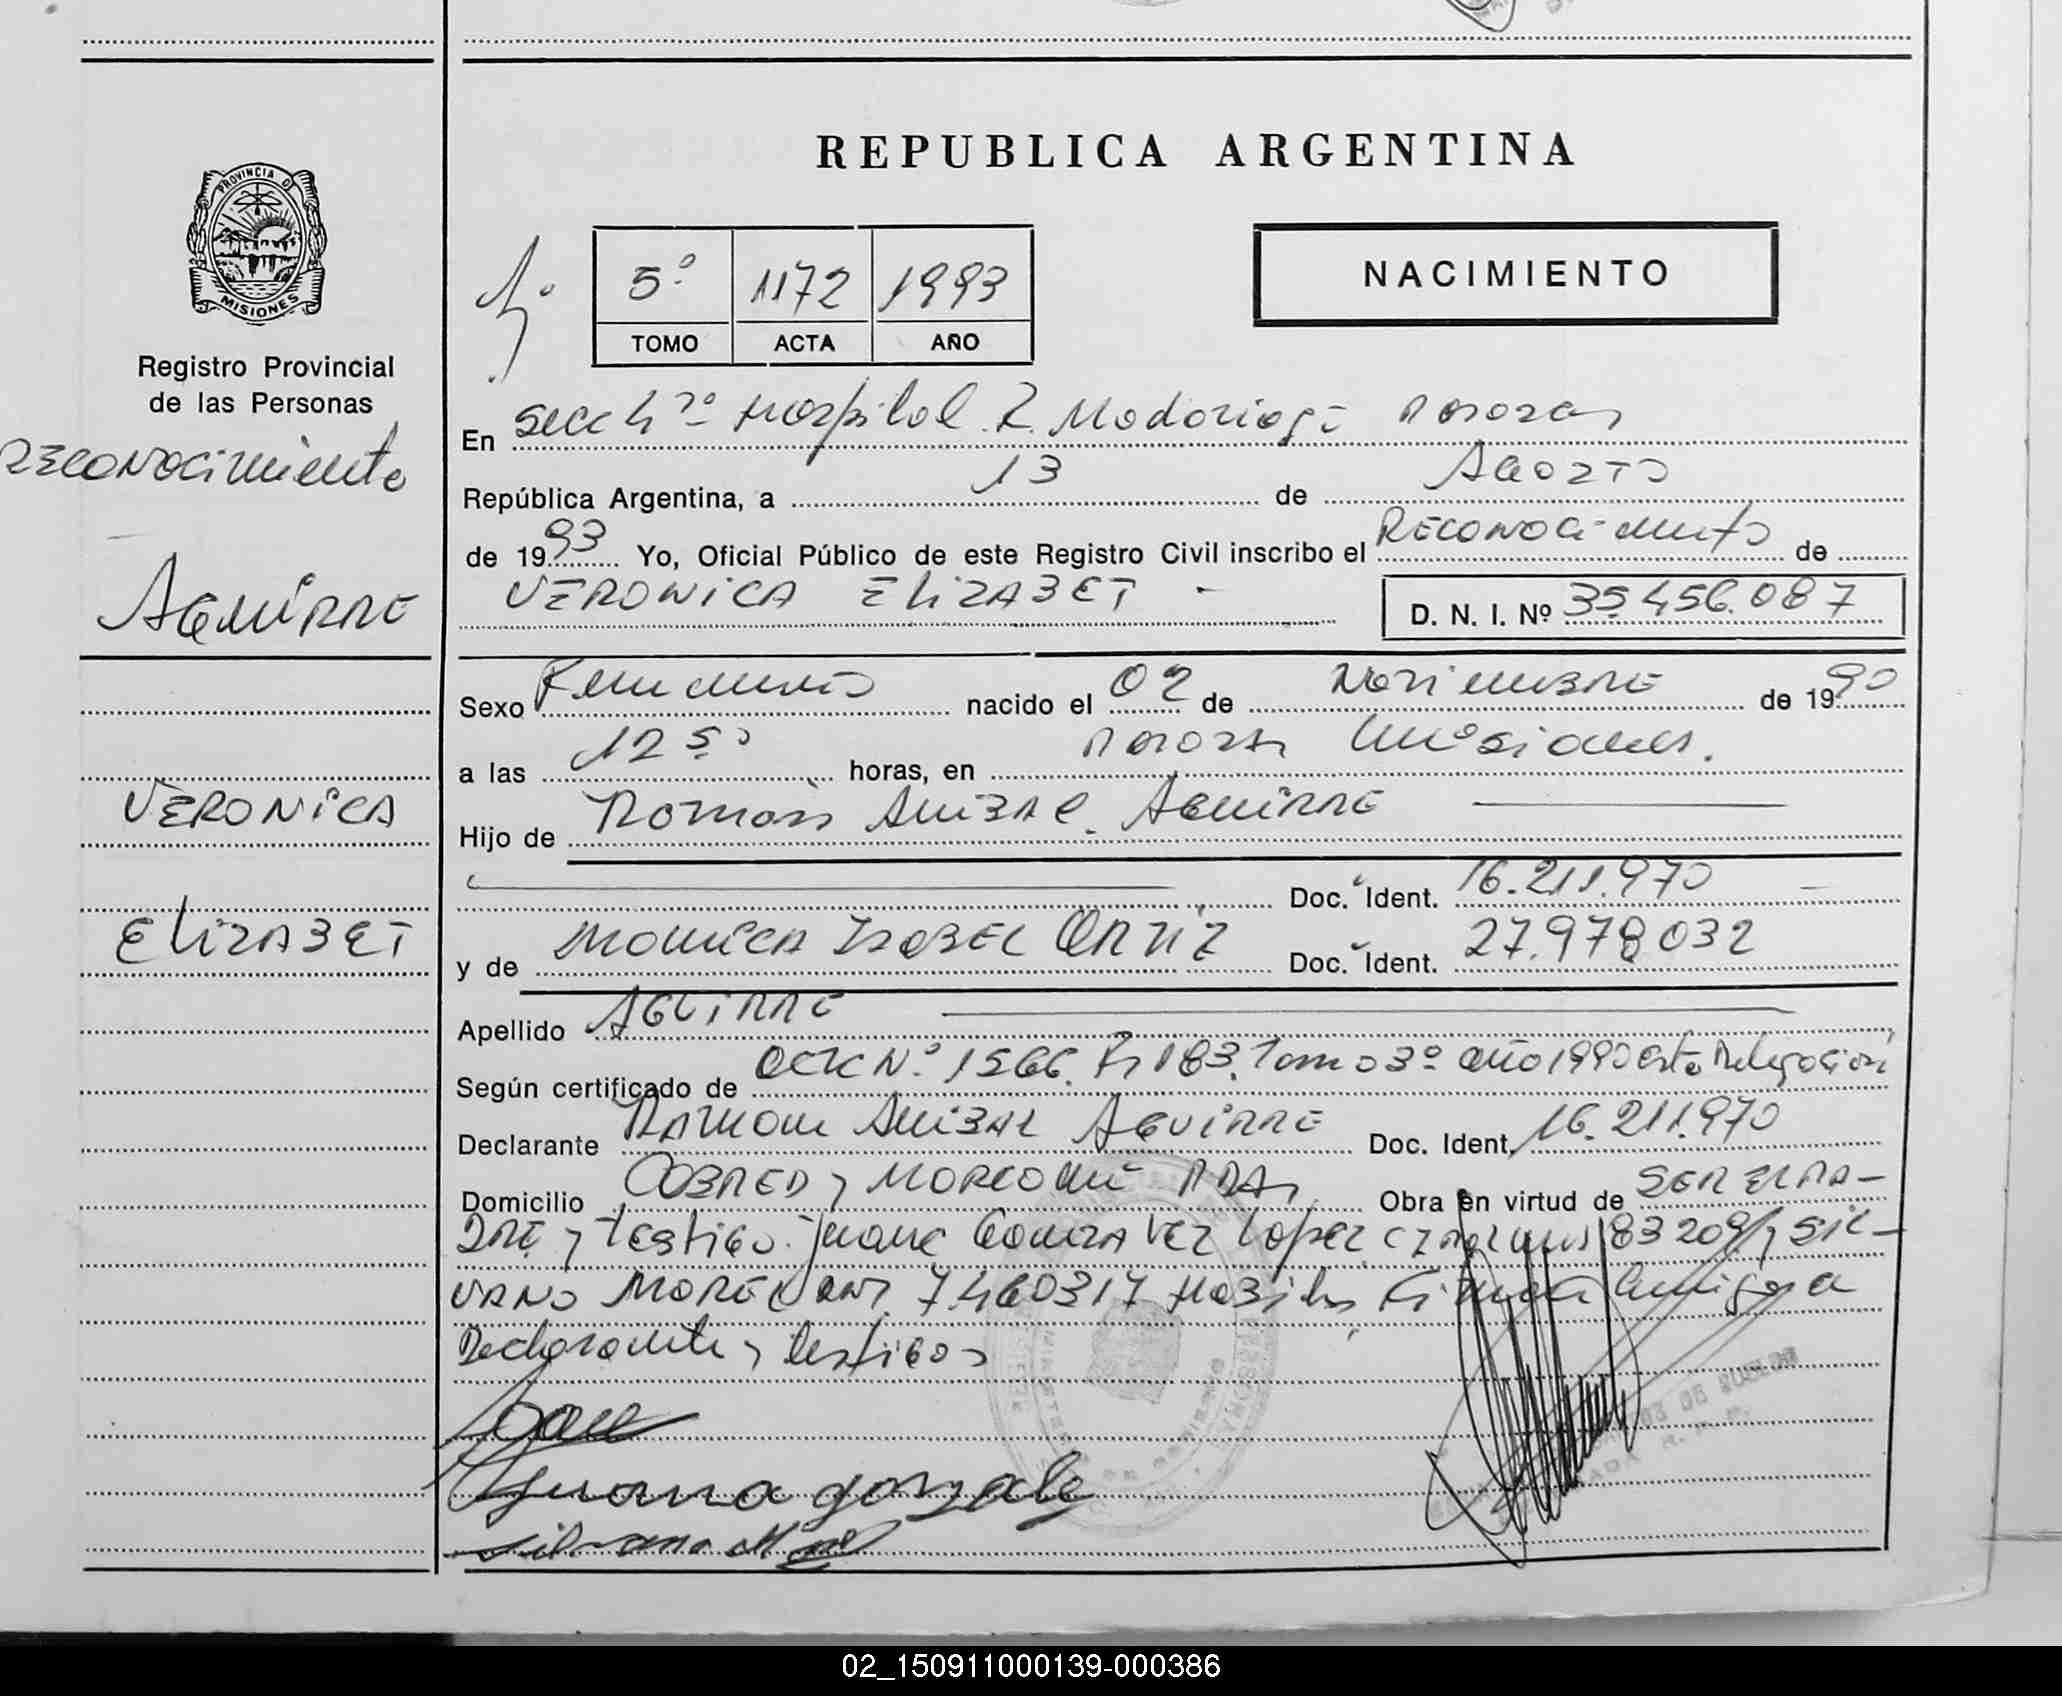 REPUBLICA ARGENTINA
PROVINCIA D
MISIONES
Registro Provincial
de las Personas
Reconocimiento
AGUIRRE
VERONICA
ELIZABET
5º 1172 1993
TOMO ACTA AÑO
NACIMIENTO
En Secc 4ta Hospital R. Madariaga Posadas
República Argentina, a 13 de Agosto
de 1993 Yo, Oficial Público de este Registro Civil inscribo el Reconocimiento de
VERONICA ELIZABET - D. N. I. Nº 35.456.087
Sexo Femenino nacido el 02 de Noviembre de 1990
a las 12 50 horas, en Posadas Misiones.
Hijo de Ramón Anibal Aguirre
Doc. Ident. 16.211.970
y de Monica Isabel Ortiz Doc. Ident. 27.978.032
Apellido AGUIRRE
Según certificado de Acta Nº 1566. Fº 183. Tomo 3º año 1990 esta Delegación
Declarante Ramon Anibal Aguirre Doc. Ident. 16.211.970
Domicilio Obra en virtud de ser el pa-
dre y testigo. Lopez 83209 y Sil-
vano 7.460317 Habiles, Firman Conmigo
Declarante y testigos
Juana gonzale
Silvano
02_150911000139-000386